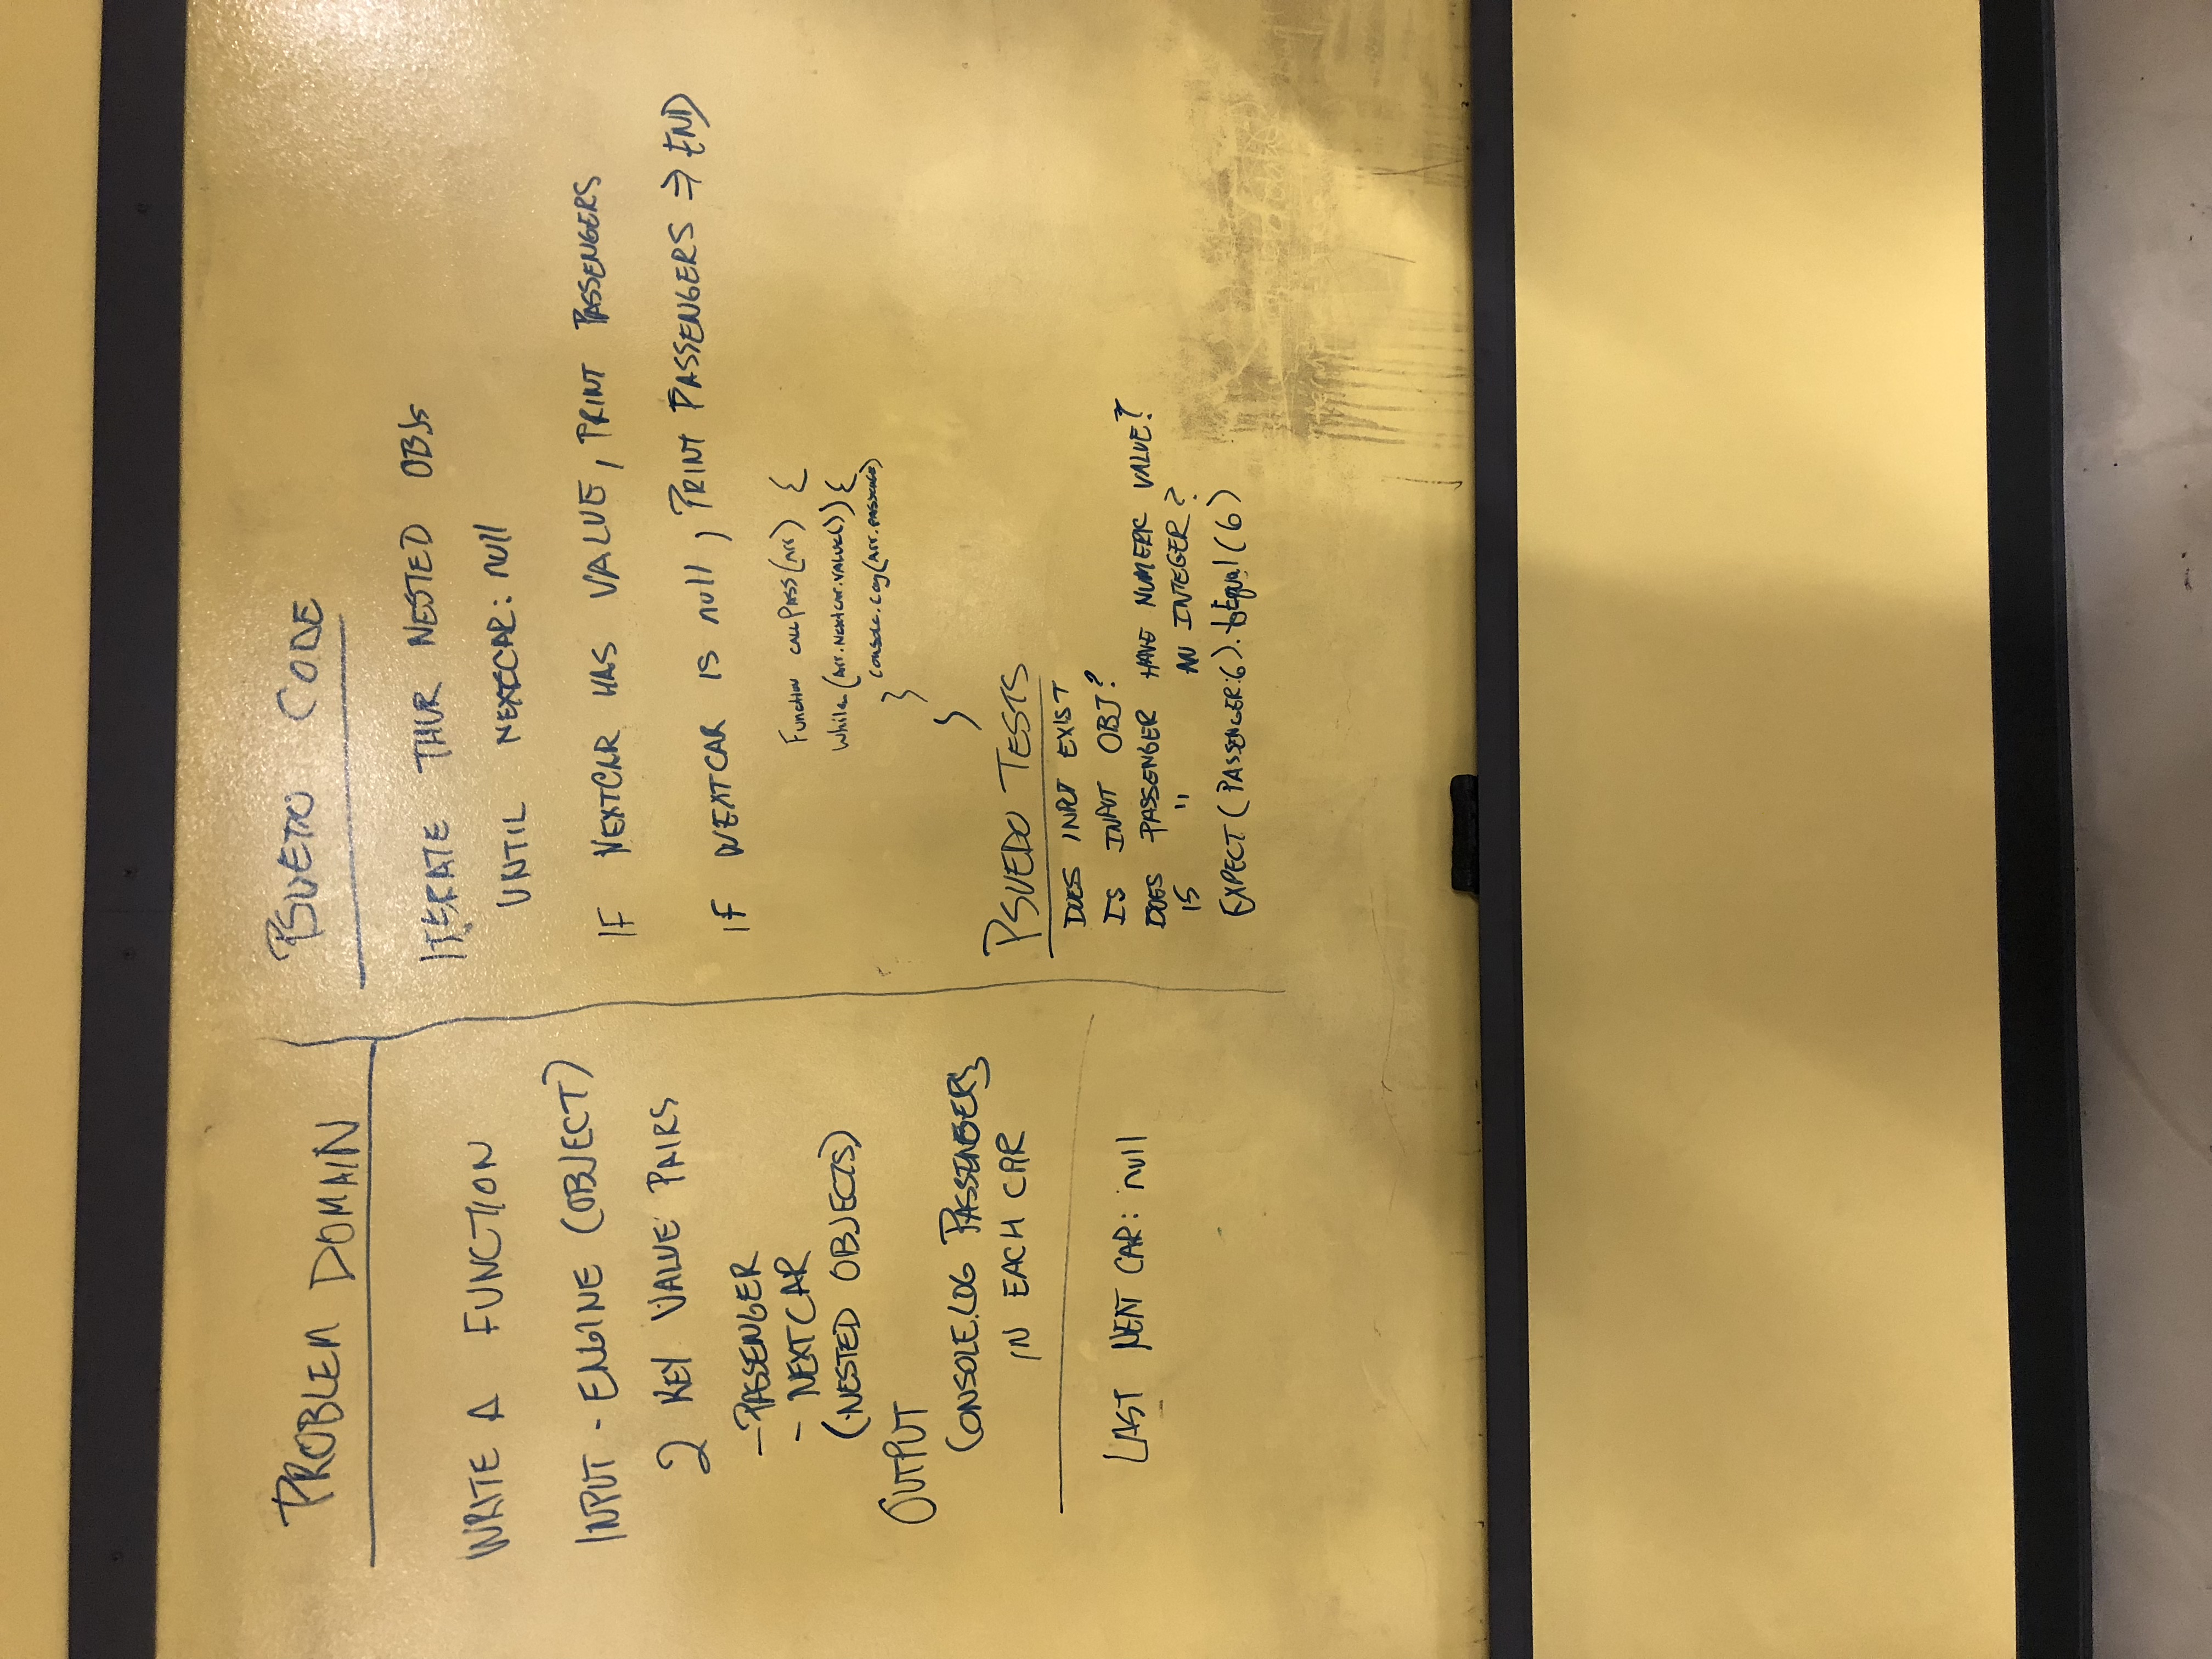 PROBLEM DOMAIN
WRITE A FUNCTION
INPUT - ENGINE (OBJECT)
2 KEY VALUE PAIRS
- PASSENGER
- NEXTCAR
(NESTED OBJECTS)
OUTPUT
CONSOLE.LOG PASSENGERS
IN EACH CAR
LAST NEXT CAR: null
PSUEDO CODE
ITERATE THUR NESTED OBJs
UNTIL NEXTCAR: null
IF NEXTCAR HAS VALUE, PRINT PASSENGERS
IF NEXTCAR IS null, PRINT PASSENGERS => END
Function CALLPASS(Arr) {
While (Arr.Nextcar.VALUE()) {
Console.Log(Arr.passenger)
}
}
PSUEDO TESTS
DOES INPUT EXIST
IS INPUT OBJ?
DOES PASSENGER HAVE NUMERIC VALUE?
IS " AN INTEGER?
EXPECT (PASSENGER:6).toEqual(6)